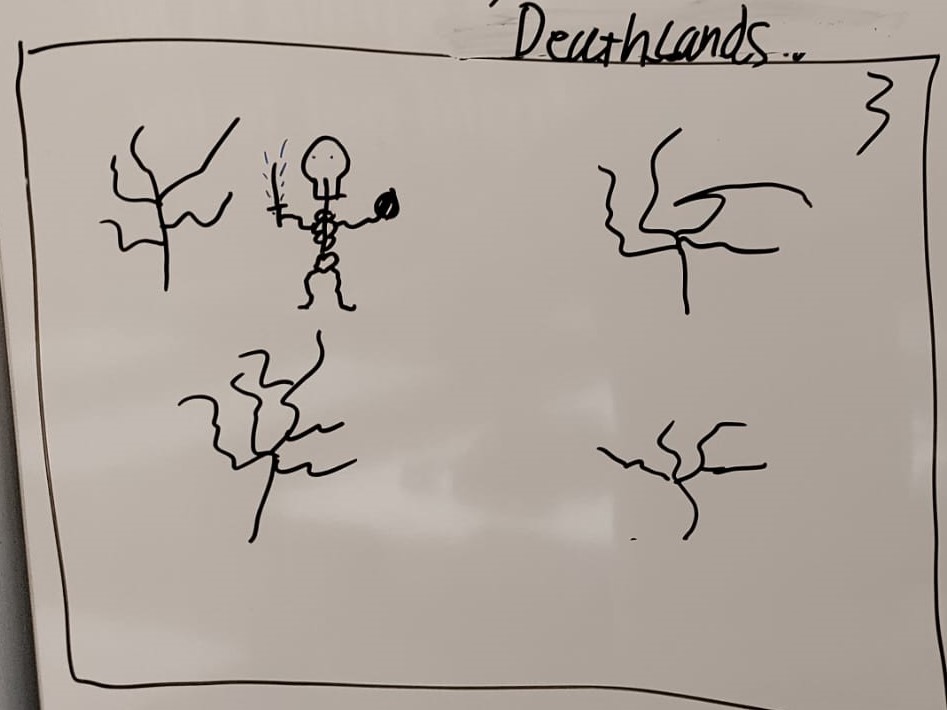 Deathlands..
3